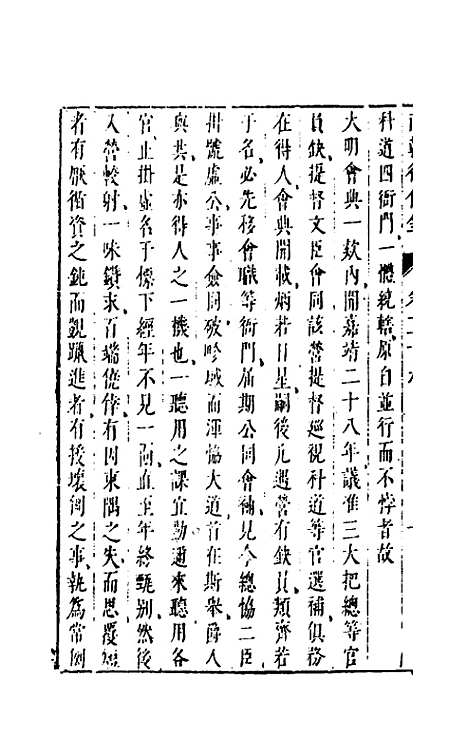 科道四衙門一體統轄原自並行而不悖者故
大明會典一欵內開嘉靖二十八年議准三大把總等官
員缺提督文臣會同該營提督巡視科道等官選補俱務
在得人會典開載炳若日星嗣後凡遇營有缺員類齊若
于名必先移會職等衙門屆期公同會補見今總協二臣
掛號虛公事事僉同破畛域而渾協大道首在斯舉爵人
與共是亦得人之一機也一聽用之課宜勤邇來聽用各
官止掛虛名于標下經年不見一面直至年終甄別然後
入營較射一味鑽求百端僥倖有因東隅之失而思覆
者有厭銜資之鈍而覬躐進者有接壤聞之事執為常例